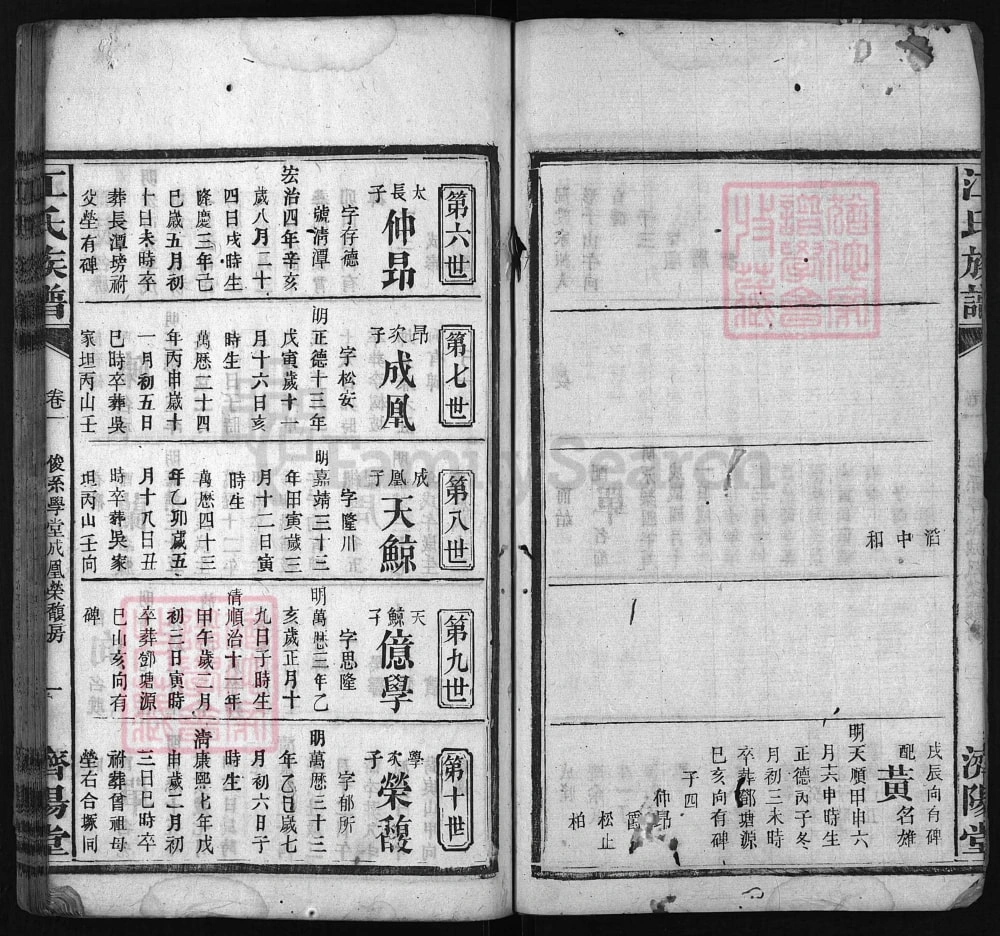 江氏族譜
濟陽堂
滔
中
和
戌辰向自碑
配黃名雄
明天順甲申六
月六申時生
正德丙子冬
月初三未時
卒葬鄧塘源
巳亥向有碑
子四
仲昂
松止
柏
第六世
太長子仲昂
字存德
號清潭
宏治四年辛亥
歲八月二十
四日戌時生
隆慶三年己
巳歲五月初
十日未時卒
葬長潭塝祔
父塋有碑
第七世
昂次子成凰
字松安
明正德十三年
戊寅歲十一
月十六日亥
時生
萬曆二十四
年丙申歲十
一月初五日
巳時卒葬吳
家坦丙山壬
第八世
成凰子天鯨
字隆川
明嘉靖三十三
年甲寅歲三
月十二日寅
時生
萬曆四十三
年乙卯歲五
月十八日丑
時卒葬吳家
坦丙山壬向
第九世
天鯨子億學
字思隆
明萬曆三年乙
亥歲正月十
九日子時生
清順治十一年
甲午歲二月
初三日寅時
卒葬鄧塘源
巳山亥向有
碑
第十世
學次子榮馥
字郁所
明萬曆三十三
年乙巳歲七
月初六日子
時生
清康熙七年戊
申歲二月初
三日巳時卒
祔葬曾祖母
塋右合塚同
江氏族譜
卷一
俊系學堂成凰榮馥房
一
濟陽堂
FamilySearch